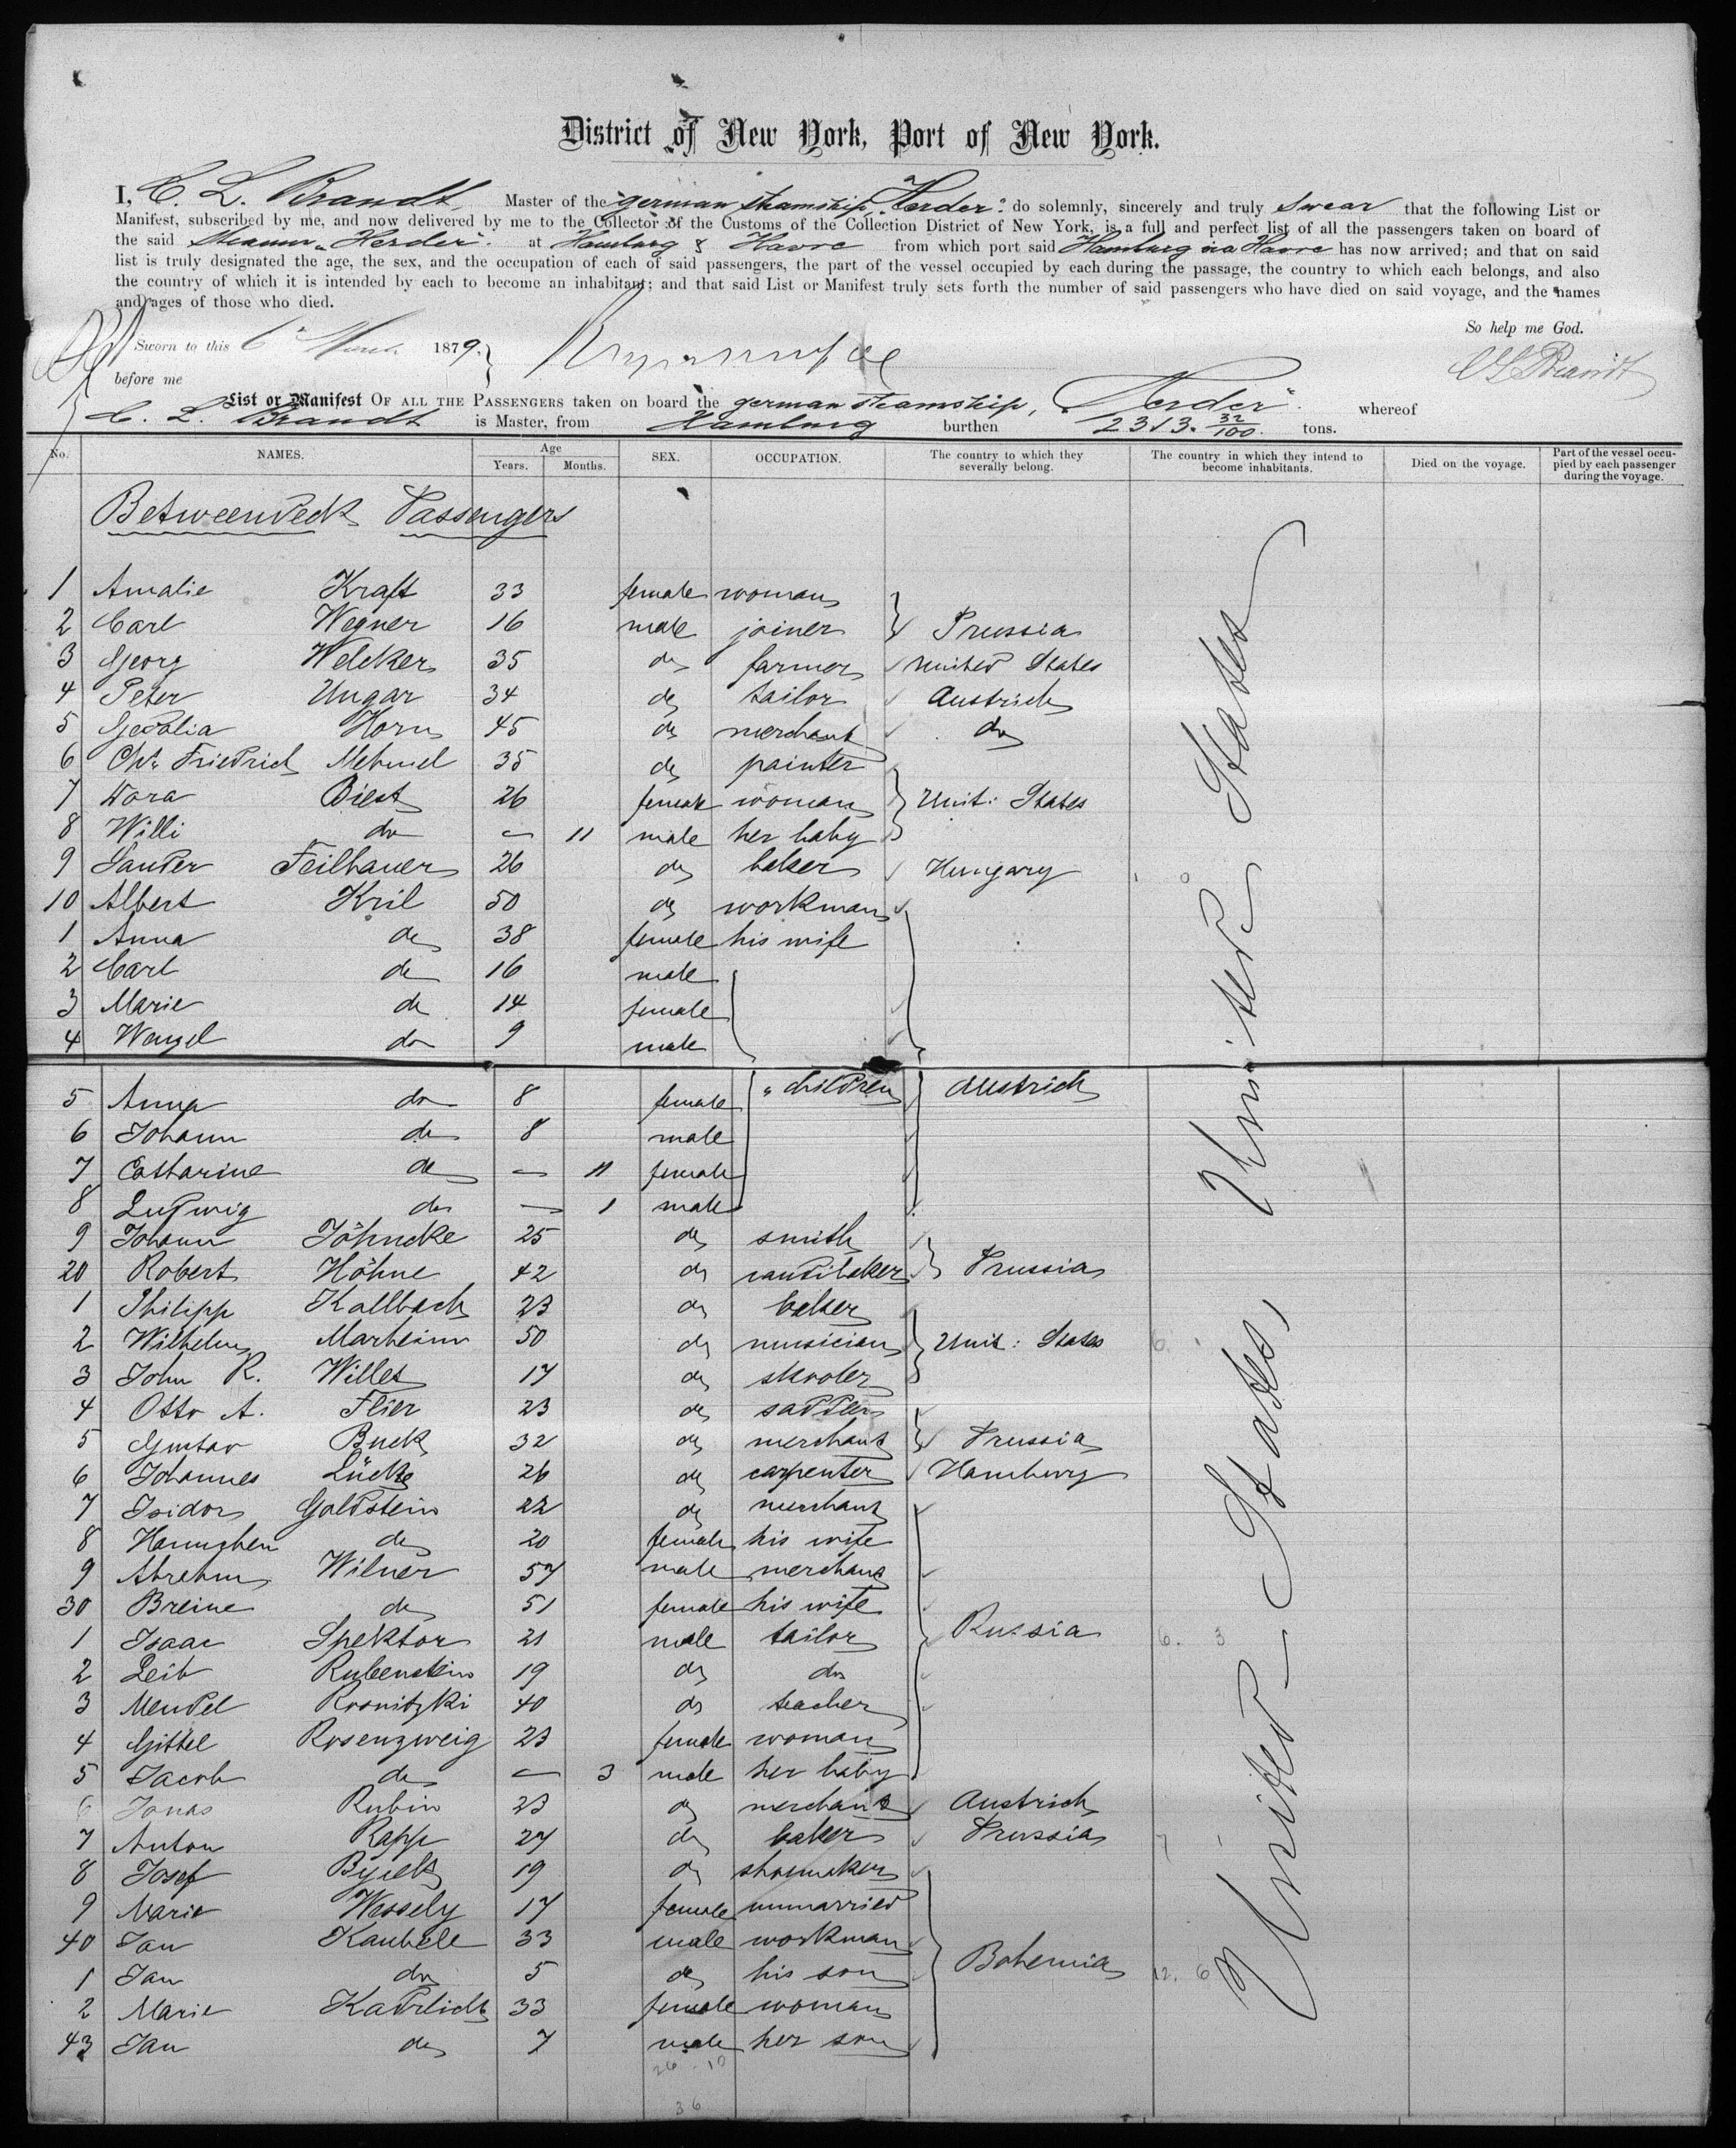 District of New York, Port of New York.
I, C. L. Brandt Master of the german steamship "Herder" do solemnly, sincerely and truly swear that the following List or
Manifest, subscribed by me, and now delivered by me to the Collector of the Customs of the Collection District of New York, is a full and perfect list of all the passengers taken on board of
the said Steamer "Herder" at Hamburg & Havre from which port said Hamburg via Havre has now arrived; and that on said
list is truly designated the age, the sex, and the occupation of each of said passengers, the part of the vessel occupied by each during the passage, the country to which each belongs, and also
the country of which it is intended by each to become an inhabitant; and that said List or Manifest truly sets forth the number of said passengers who have died on said voyage, and the names
and ages of those who died.
So help me God.
Sworn to this 6 March 1879.
before me
C L Brandt
List or Manifest OF ALL THE PASSENGERS taken on board the german steamship, "Herder" whereof
C. L. Brandt is Master, from Hamburg burthen 2313. 32/100 tons.
No. NAMES. Age Years. Months. SEX. OCCUPATION. The country to which they severally belong. The country in which they intend to become inhabitants. Died on the voyage. Part of the vessel occupied by each passenger during the voyage.
Betweendeck Passengers
1 Amalie Kraft 33 female woman
2 Carl Wegner 16 male joiner Prussia
3 Georg Welcker 35 do farmer United States
4 Peter Ungar 34 do tailor Austrich
5 Gedalia Horn 45 do merchant do
6 Chr. Friedrich Mehmel 35 do painter
7 Dora Diest 26 female woman Unit: States
8 Willi do — 11 male her baby
9 Sander Feilbauer 26 do baker Hungary
10 Albert Kril 50 do workman
1 Anna do 38 female his wife
2 Carl do 16 male
3 Marie do 14 female
4 Wenzel do 9 male
5 Anna do 8 female " children Austrich
6 Johann do 8 male
7 Catharine do — 11 female
8 Ludwig do — 1 male
9 Johann Jöhncke 25 do smith
20 Robert Höhne 42 do candibaker Prussia
1 Philipp Kallbach 23 do baker
2 Wilhelm Marheim 50 do musician Unit: States
3 John R. Willet 17 do skooler
4 Otto A. Flier 23 do saddler
5 Gustav Buck 32 do merchant Prussia
6 Johannes Lücke 26 do carpenter Hamburg
7 Isidor Goldstein 22 do merchant
8 Hannchen do 20 female his wife
9 Abrehm Wilner 57 male merchant
30 Breine do 51 female his wife
1 Isaac Spektor 21 male tailor Russia
2 Leib Rubenstein 19 do do
3 Mendel Rosnitzki 40 do teacher
4 Gittel Rosenzweig 23 female woman
5 Jacob do — 3 male her baby
6 Jonas Rubin 23 do merchant Austrich
7 Anton Rapp 27 do baker Prussia
8 Josef 19 do shoemaker
9 Marie Wessely 17 female unmarried
40 Jan Kaubele 33 male workman
1 Jan do 5 do his son Bohemia
2 Marie Kadrlick 33 female woman
43 Jan do 7 male her son
United States
United States
26 . 10
36